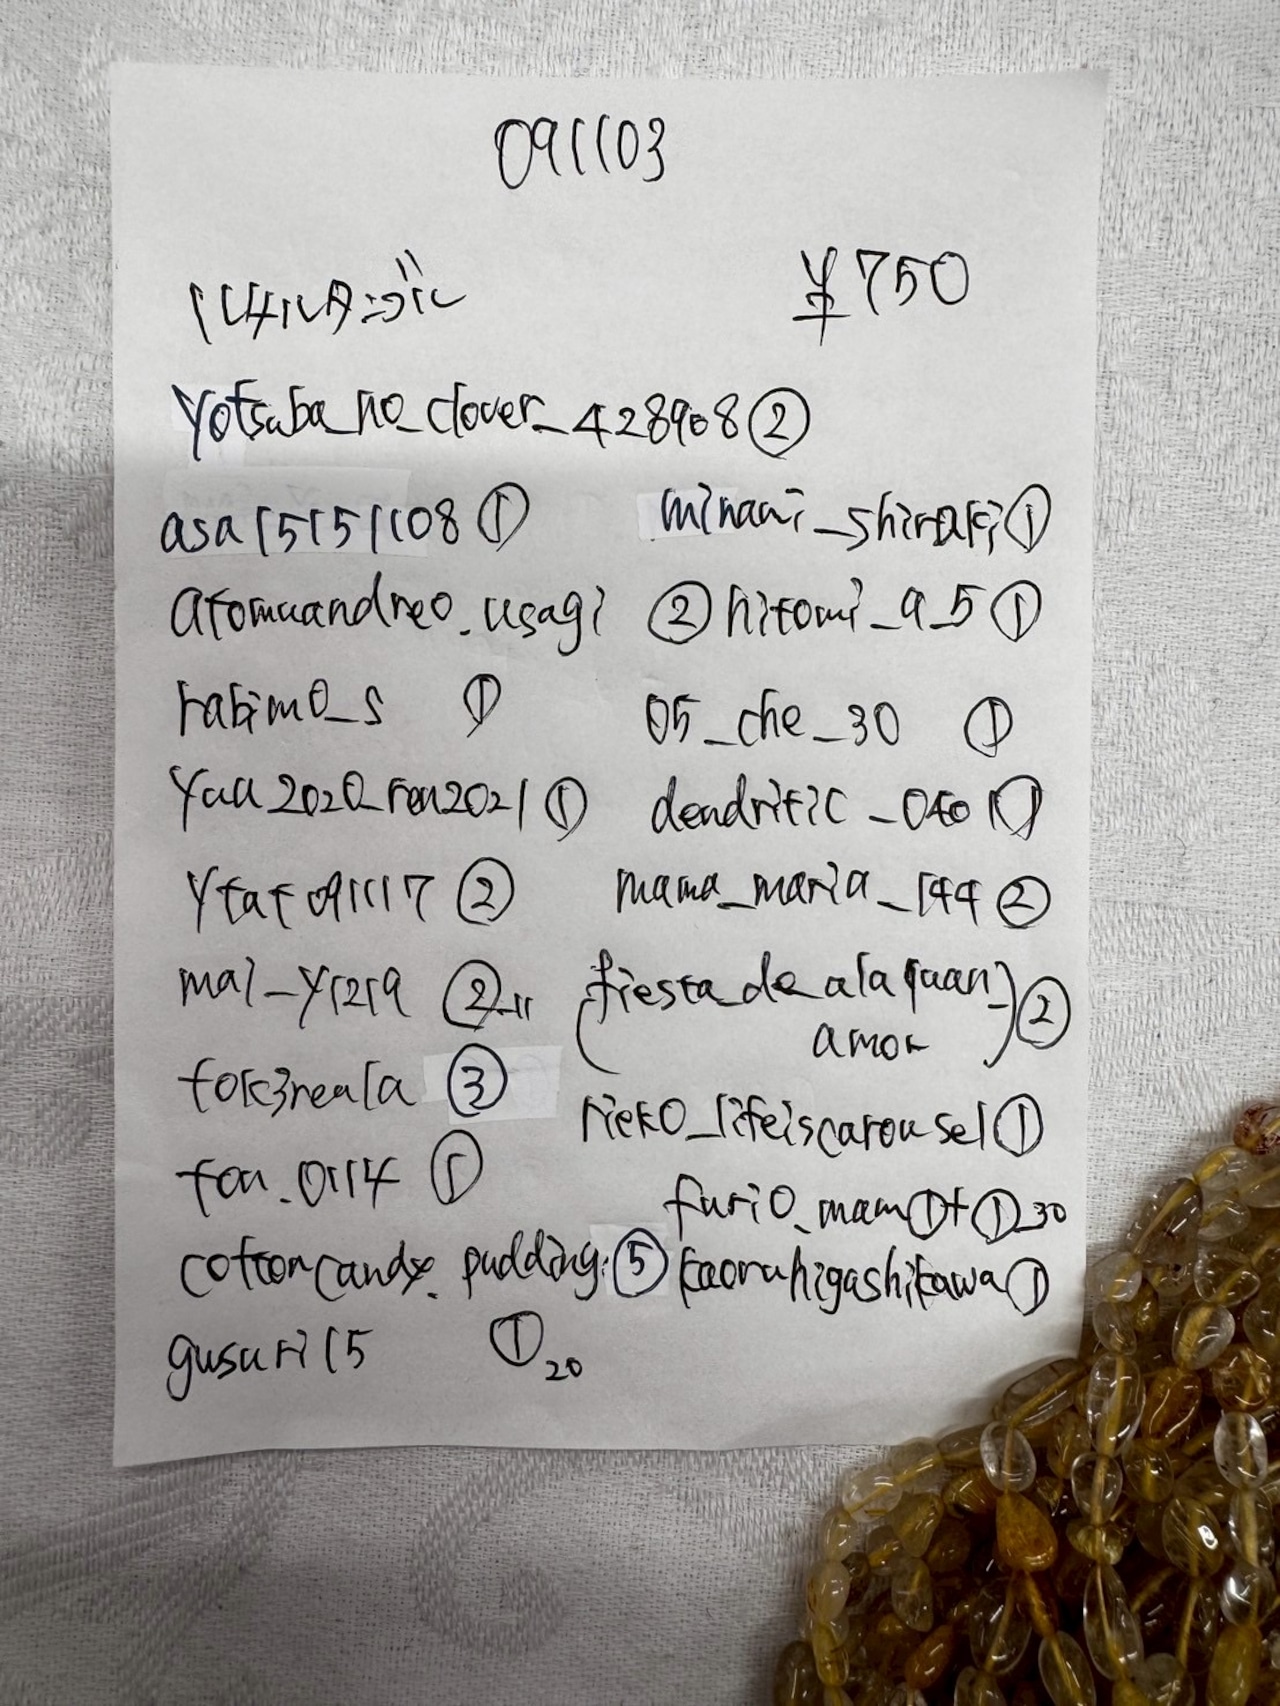 091103
ルチルタンブル ¥750
yotsuba_no_clover_428908 ②
asa15151108 ① minami_shiraki ①
atomuandreo_usagi ② hitomi_a_5 ①
rabimo_s ① 05_che_30 ①
yuu2020_ren2021 ① dendritic_040 ①
ytat091117 ② mama_maria_144 ②
mai_y1219 ② fiesta_de_ala
amor ②
tok3reala ③ rieko_lifeiscarousel ①
ton.0114 ① furio_mam ①+①30
cottoncandy._pudding. ⑤ kaoruhigashikawa ①
gusuri15 ①20